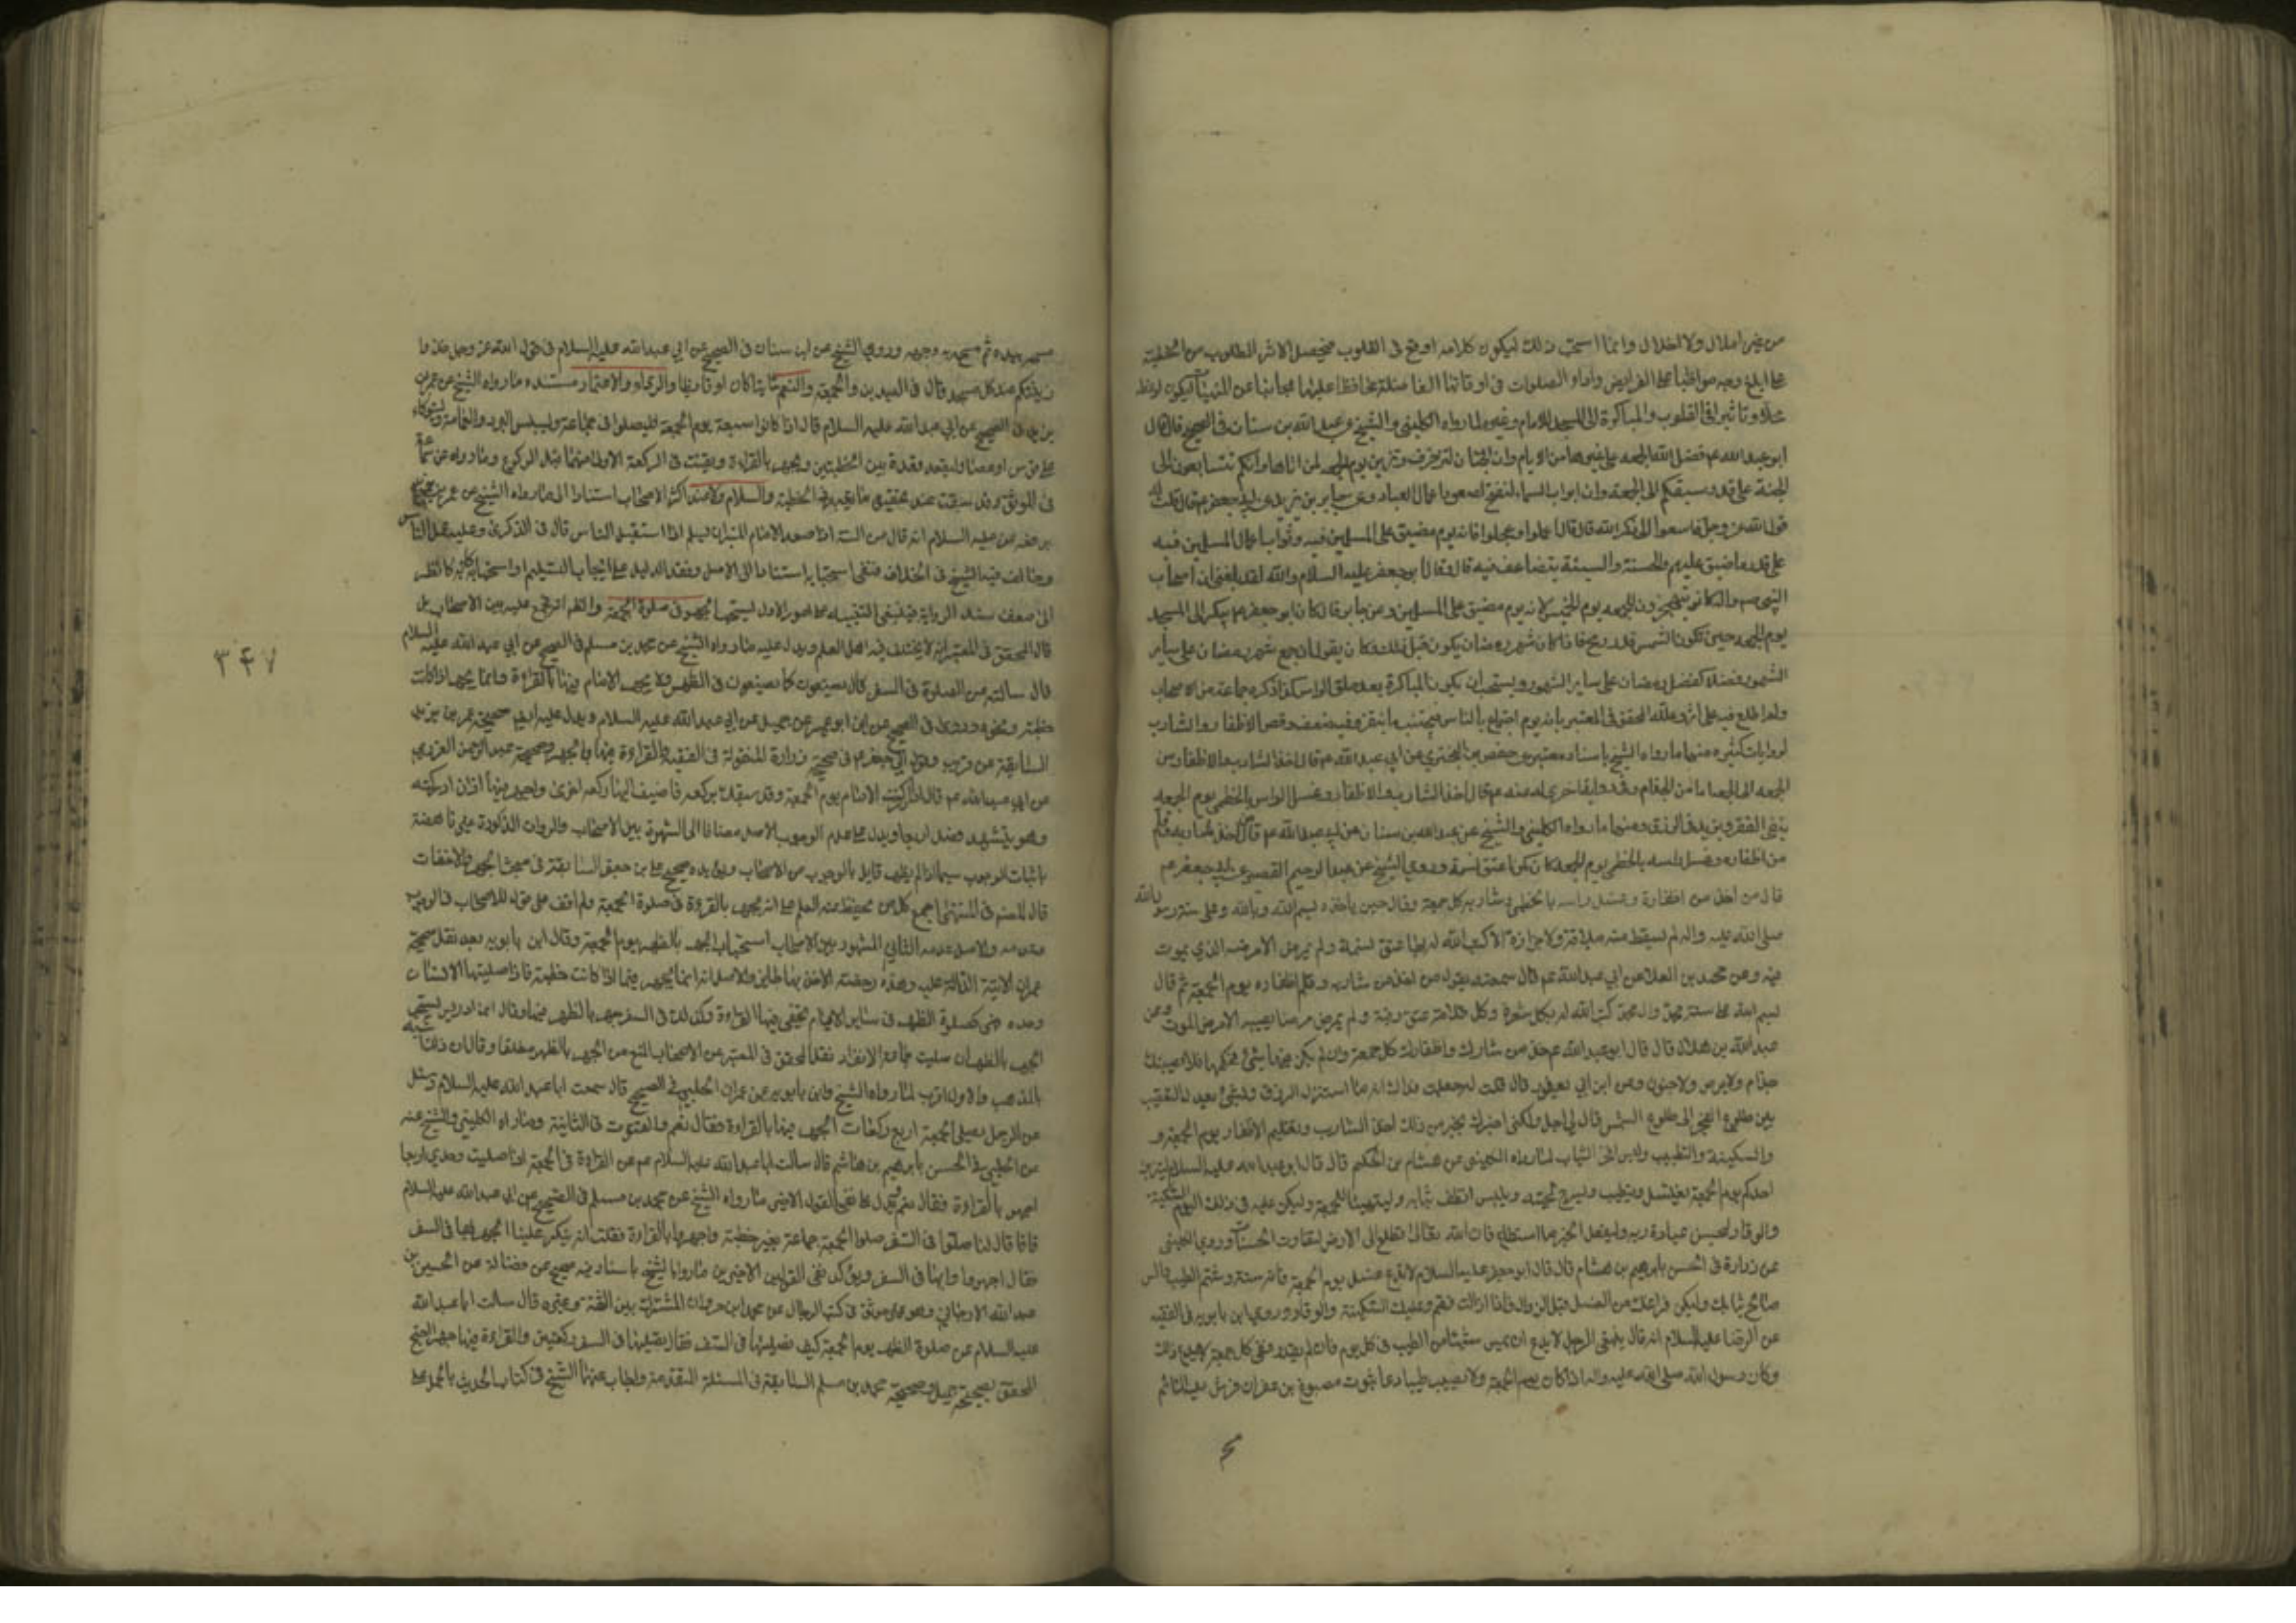 من غير املال ولا اخلال وانما استحب ذلك ليكون كلامه اوقع في القلوب فيحصل الاثر المطلوب من الخطبة
على ابلغ وجه مواظبا على الفرايض واداء الصلوات في اوقاتها الفاضلة محافظا عليها مجانبا عن المنهيات ليكون لوعظه
تأثيرا في القلوب والمباكرة الى المسجد للامام وغيره لما رواه الكليني والشيخ عن عبد الله بن سنان في الصحيح قال قال
ابو عبد الله عم فضل الله الجمعة على غيرها من الايام وان الجنان لتزخرف وتزين يوم الجمعة لمن اتاها وانكم تتسابقون الى
الجنة على قدر سبقكم الى الجمعة وان ابواب السماء لتفتح لصعود اعمال العباد وعن جابر بن يزيد عن ابي جعفر عم قال قلت له
قول الله عز وجل فاسعوا الى ذكر الله قال قال اعملوا وعجلوا فانه يوم مضيق على المسلمين فيه وثواب اعمال المسلمين فيه
على قدر ما ضيق عليهم والحسنة والسيئة تضاعف فيه قال وقال ابو جعفر عليه السلام والله لقد بلغني ان اصحاب
النبي صم والله كانوا يتجهزون للجمعة يوم الخميس لانه يوم مضيق على المسلمين وعن جابر قال كان ابو جعفر عم يبكر الى المسجد
يوم الجمعة حين تكون الشمس قدر رمح فاذا كان شهر رمضان يكون قبل ذلك وكان يقول ان لجمع شهر رمضان على ساير
الشهور فضلا كفضل رمضان على ساير الشهور ويستحب ان يكون المباكرة بعد حلق الراس كذا ذكره جماعة من الاصحاب
ولم اطلع فيه على اثر وعلله المحقق في المعتبر بانه يوم اجتماع بالناس فيجتنب ما ينفر وقص الاظفار والشارب
لروايات كثيرة منها ما رواه الشيخ باسناد معتبر عن حفص بن البختري عن ابي عبد الله عم قال اخذ الشارب والاظفار من
الجمعة الى الجمعة امان من الجذام وفي رواية اخرى له عنه عم قال اخذ الشارب والاظفار وغسل الراس بالخطمي يوم الجمعة
ينفي الفقر ويزيد في الرزق ومنها ما رواه الكليني والشيخ عن عبد الله بن سنان عن ابي عبد الله عم قال من اخذ من شاربه وقلم
من اظفاره وغسل راسه بالخطمي يوم الجمعة كان كمن اعتق نسمة وروى الشيخ عن عبد الرحيم القصير عن ابي جعفر عم
قال من اخذ من اظفاره وشاربه كل جمعة وقال حين ياخذه بسم الله وبالله وعلى سنة رسول الله
صلى الله عليه واله لم تسقط منه قلامة ولا جزازة الا كتب الله له بها عتق نسمة ولم يمرض الا مرضه الذي يموت
فيه وعن محمد بن العلا عن ابي عبد الله عم قال سمعته يقول من اخذ من شاربه وقلم اظفاره يوم الجمعة ثم قال
بسم الله على سنة محمد وال محمد كتب الله له بكل شعرة وكل قلامة عتق رقبة ولم يمرض مرضا يصيبه الا مرض الموت وعن
عبد الله بن هلال قال قال ابو عبد الله عم خذ من شاربك واظفارك كل جمعة وان لم يكن فيها شئ فحكها فلا يصيبك
جذام ولا برص ولا جنون وعن ابن ابي يعفور قال قلت له جعلت فداك انه ما استنزل الرزق بشئ يعدل التعقيب
بين طلوع الفجر الى طلوع الشمس قال لي اجل ولكني اخبرك بخير من ذلك اخذ الشارب وتقليم الاظفار يوم الجمعة و
والسكينة والتطيب ولبس الثياب لما رواه الكليني عن هشام بن الحكم قال قال ابو عبد الله عليه السلام ليتزين
احدكم يوم الجمعة يغتسل ويتطيب ويسرح لحيته ويلبس انظف ثيابه وليتهيأ للجمعة وليكن عليه في ذلك اليوم السكينة
والوقار وليحسن عبادة ربه وليفعل الخير ما استطاع فان الله تعالى يطلع الى الارض ليضاعف الحسنات وروى الكليني
عن زرارة في الحسن بابرهيم بن هشام قال قال ابو جعفر عليه السلام لا تدع غسل يوم الجمعة فانه سنة وشم الطيب والبس
صالح ثيابك وليكن فراغك من الغسل قبل الزوال فاذا زالت فقم وعليك السكينة والوقار وروى ابن بابويه في الفقيه
عن الرضا عليه السلام انه قال ينبغي للرجل لا يدع ان يمس شيئا من الطيب في كل يوم فان لم يقدر ففي كل جمعة لا يدع ذلك
وكان رسول الله صلى الله عليه واله اذا كان يوم الجمعة ولا يصيب طيبا دعا بثوب مصبوغ بزعفران فرش عليه الماء ثم
مسحه بيده ثم مسح به وجهه وروى الشيخ عن ابن سنان في الصحيح عن ابي عبد الله عليه السلام في قول الله عز وجل خذوا
زينتكم عند كل مسجد قال في العيدين والجمعة والتعمم شاتيا كان او قايظا والرداء والاعتماد مستنده ما رواه الشيخ عن عمر بن
يزيد في الصحيح عن ابي عبد الله عليه السلام قال اذا كانوا سبعة يوم الجمعة فليصلوا في جماعة وليلبس البرد والعمامة وليتوكأ
على قوس او عصا وليقعد قعدة بين الخطبتين ويجهر بالقراءة ويقنت في الركعة الاولى منهما قبل الركوع وما رواه عن سماعة
في الموثق وقد سبقت عند تحقيق ما يجب في الخطبة والسلام ولا عند اكثر الاصحاب استنادا الى ما رواه الشيخ عن عمرو بن جميع
يرفعه عن علي عليه السلام انه قال من السنة اذا صعد الامام المنبر ان يسلم اذا استقبل الناس قال في الذكرى وعليه عمل الناس
وخالف فيه الشيخ في الخلاف فنفى استحبابه استنادا الى الاصل وفقد الدليل على ايجاب التسليم او استحبابه وكانه نظر
الى ضعف سند الرواية فينبغي التنبيه على امور الاول يستحب الجهر في صلوة الجمعة والظاهر انه مجمع عليه بين الاصحاب بل
قال المحقق في المعتبر انه لا يختلف فيه اهل العلم ويدل عليه ما رواه الشيخ عن محمد بن مسلم في الصحيح عن ابي عبد الله عليه السلام
قال سالته عن الصلوة في السفر قال تصنعون كما تصنعون في الظهر ولا يجهر الامام فيها بالقراءة وانما يجهر اذا كانت
خطبة ونحوه روى في الصحيح عن ابن ابي عمير عن جميل عن ابي عبد الله عليه السلام ويدل عليه ايضا صحيحة عمر بن يزيد
السابقة عن قريب وقول ابي جعفر عم في صحيحة زرارة المنقولة في الفقيه والقراءة فيها بالجهر وصحيحة عبد الرحمن العرزمي
عن ابي عبد الله عم قال اذا ادركت الامام يوم الجمعة وقد سبقك بركعة فاضف اليها ركعة اخرى واجهر فيها فان ادركته
وهو يتشهد فصل اربعا ويدل على عدم الوجوب الاصل مضافا الى الشهرة بين الاصحاب والروايات المذكورة غير ناهضة
باثبات الوجوب سيما اذا لم يظهر قايل بالوجوب من الاصحاب ويؤيده صحيحة علي بن جعفر السابقة في مبحث الجهر والاخفات
قال المصنف في المنتهى اجمع كل من يحفظ عنه العلم على انه يجهر بالقراءة في صلوة الجمعة ولم اقف على قول للاصحاب في الوجوب
وعدمه والاصل عدمه الثاني المشهور بين الاصحاب استحباب الجهر بالظهر يوم الجمعة وقال ابن بابويه بعد نقل صحيحة
عمران الاتية الدالة عليه وهذه رخصة الاخذ بها جايز والاصل انه انما يجهر فيها اذا كانت خطبة فاذا صليتها الانسان
وحده فهي كصلوة الظهر في ساير الايام يخفي فيها القراءة وكذلك في السفر من صلى الظهر فيها وقال ابن ادريس يستحب
الجهر بالظهر ان صليت جماعة لا انفرادا ونقل المحقق في المعتبر عن بعض الاصحاب المنع من الجهر بالظهر مطلقا وقال ان ذلك اشبه
بالمذهب والاول اقرب لما رواه الشيخ وابن بابويه عن عمران الحلبي في الصحيح قال سمعت ابا عبد الله عليه السلام وسئل
عن الرجل يصلي الجمعة اربع ركعات ايجهر فيها بالقراءة فقال نعم والقنوت في الثانية وما رواه الكليني والشيخ عنه
عن الحلبي في الحسن بابرهيم بن هاشم قال سالت ابا عبد الله عليه السلام عن القراءة في الجمعة اذا صليت وحدي اربعا
اجهر بالقراءة فقال نعم ويدل على نفي القول الاخير ما رواه الشيخ عن محمد بن مسلم في الصحيح عن ابي عبد الله عليه السلام
قال قال لنا صلوا في السفر صلوة الجمعة جماعة بغير خطبة واجهروا بالقراءة فقلت انه ينكر علينا الجهر بها في السفر
فقال اجهروا بها ويؤكد نفي القولين الاخيرين ما رواه الشيخ باسناد فيه صحيح عن فضالة عن الحسين بن
عبد الله الارجاني وهو غير موثق في كتب الرجال عن محمد بن مروان المشترك بين الثقة وغيره قال سالت ابا عبد الله
عليه السلام عن صلوة الظهر يوم الجمعة كيف نصليها في السفر فقال تصليها في السفر ركعتين والقراءة فيها جهرا احتج
المحقق بصحيحة جميل وصحيحة محمد بن مسلم السابقة في المسئلة المتقدمة واجاب عنهما الشيخ في كتاب الحديث بالحمل على
٣٤٧